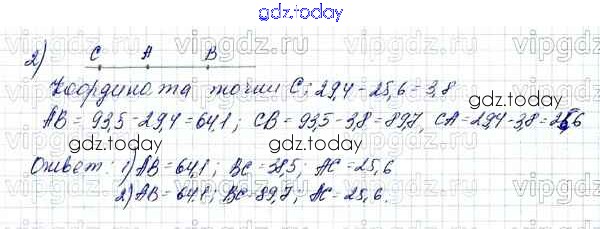 gdz.today
vipgdz.ru vipgdz.ru vipgdz.ru
2) C A B
Координата точки C: 29,4 - 25,6 = 3,8
gdz.today
AB = 93,5 - 29,4 = 64,1; CB = 93,5 - 3,8 = 89,7, CA = 29,4 - 3,8 = 25,6
gdz.today
Ответ: 1) AB = 64,1; BC = 38,5; AC = 25,6
2) AB = 64,1; BC = 89,7; AC = 25,6.
gdz.today